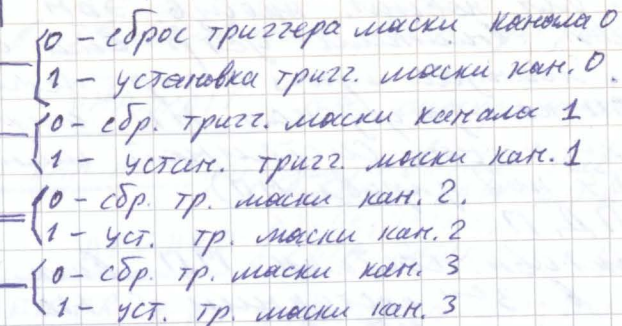 0 – сброс триггера маски канала 0
1 – установка тригг. маски кан. 0.
0 – сбр. тригг. маски канала 1
1 – устан. тригг. маски кан. 1
0 – сбр. тр. маски кан. 2.
1 – уст. тр. маски кан. 2
0 – сбр. тр. маски кан. 3
1 – уст. тр. маски кан. 3